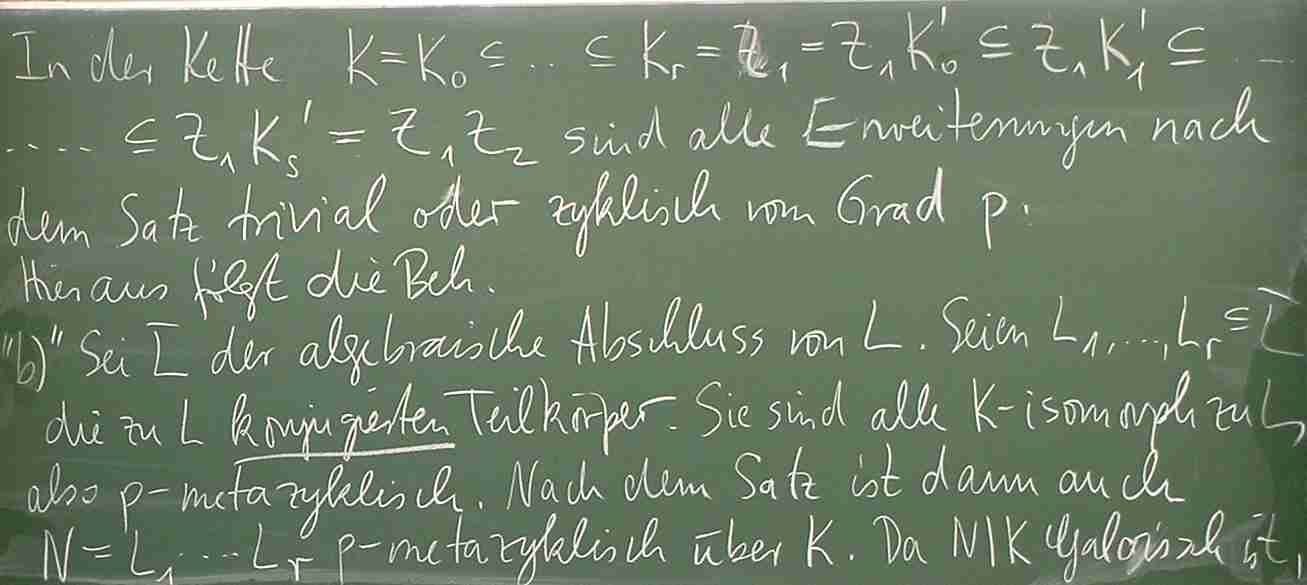 In der Kette K = K₀ ⊆ .. ⊆ Kᵣ = Z₁ = Z₁K₀' ⊆ Z₁K₁' ⊆ ....
.... ⊆ Z₁Kₛ' = Z₁Z₂ sind alle Erweiterungen nach
dem Satz trivial oder zyklisch vom Grad p.
Hieraus folgt die Beh.
"b)" Sei L̅ der algebraische Abschluss von L. Seien L₁,...,Lᵣ ⊆ L̅
die zu L konjugierten Teilkörper. Sie sind alle K-isomorph zu L,
also p-metazyklisch. Nach dem Satz ist dann auch
N = L₁ .... Lᵣ p-metazyklisch über K. Da N|K galoissch ist,